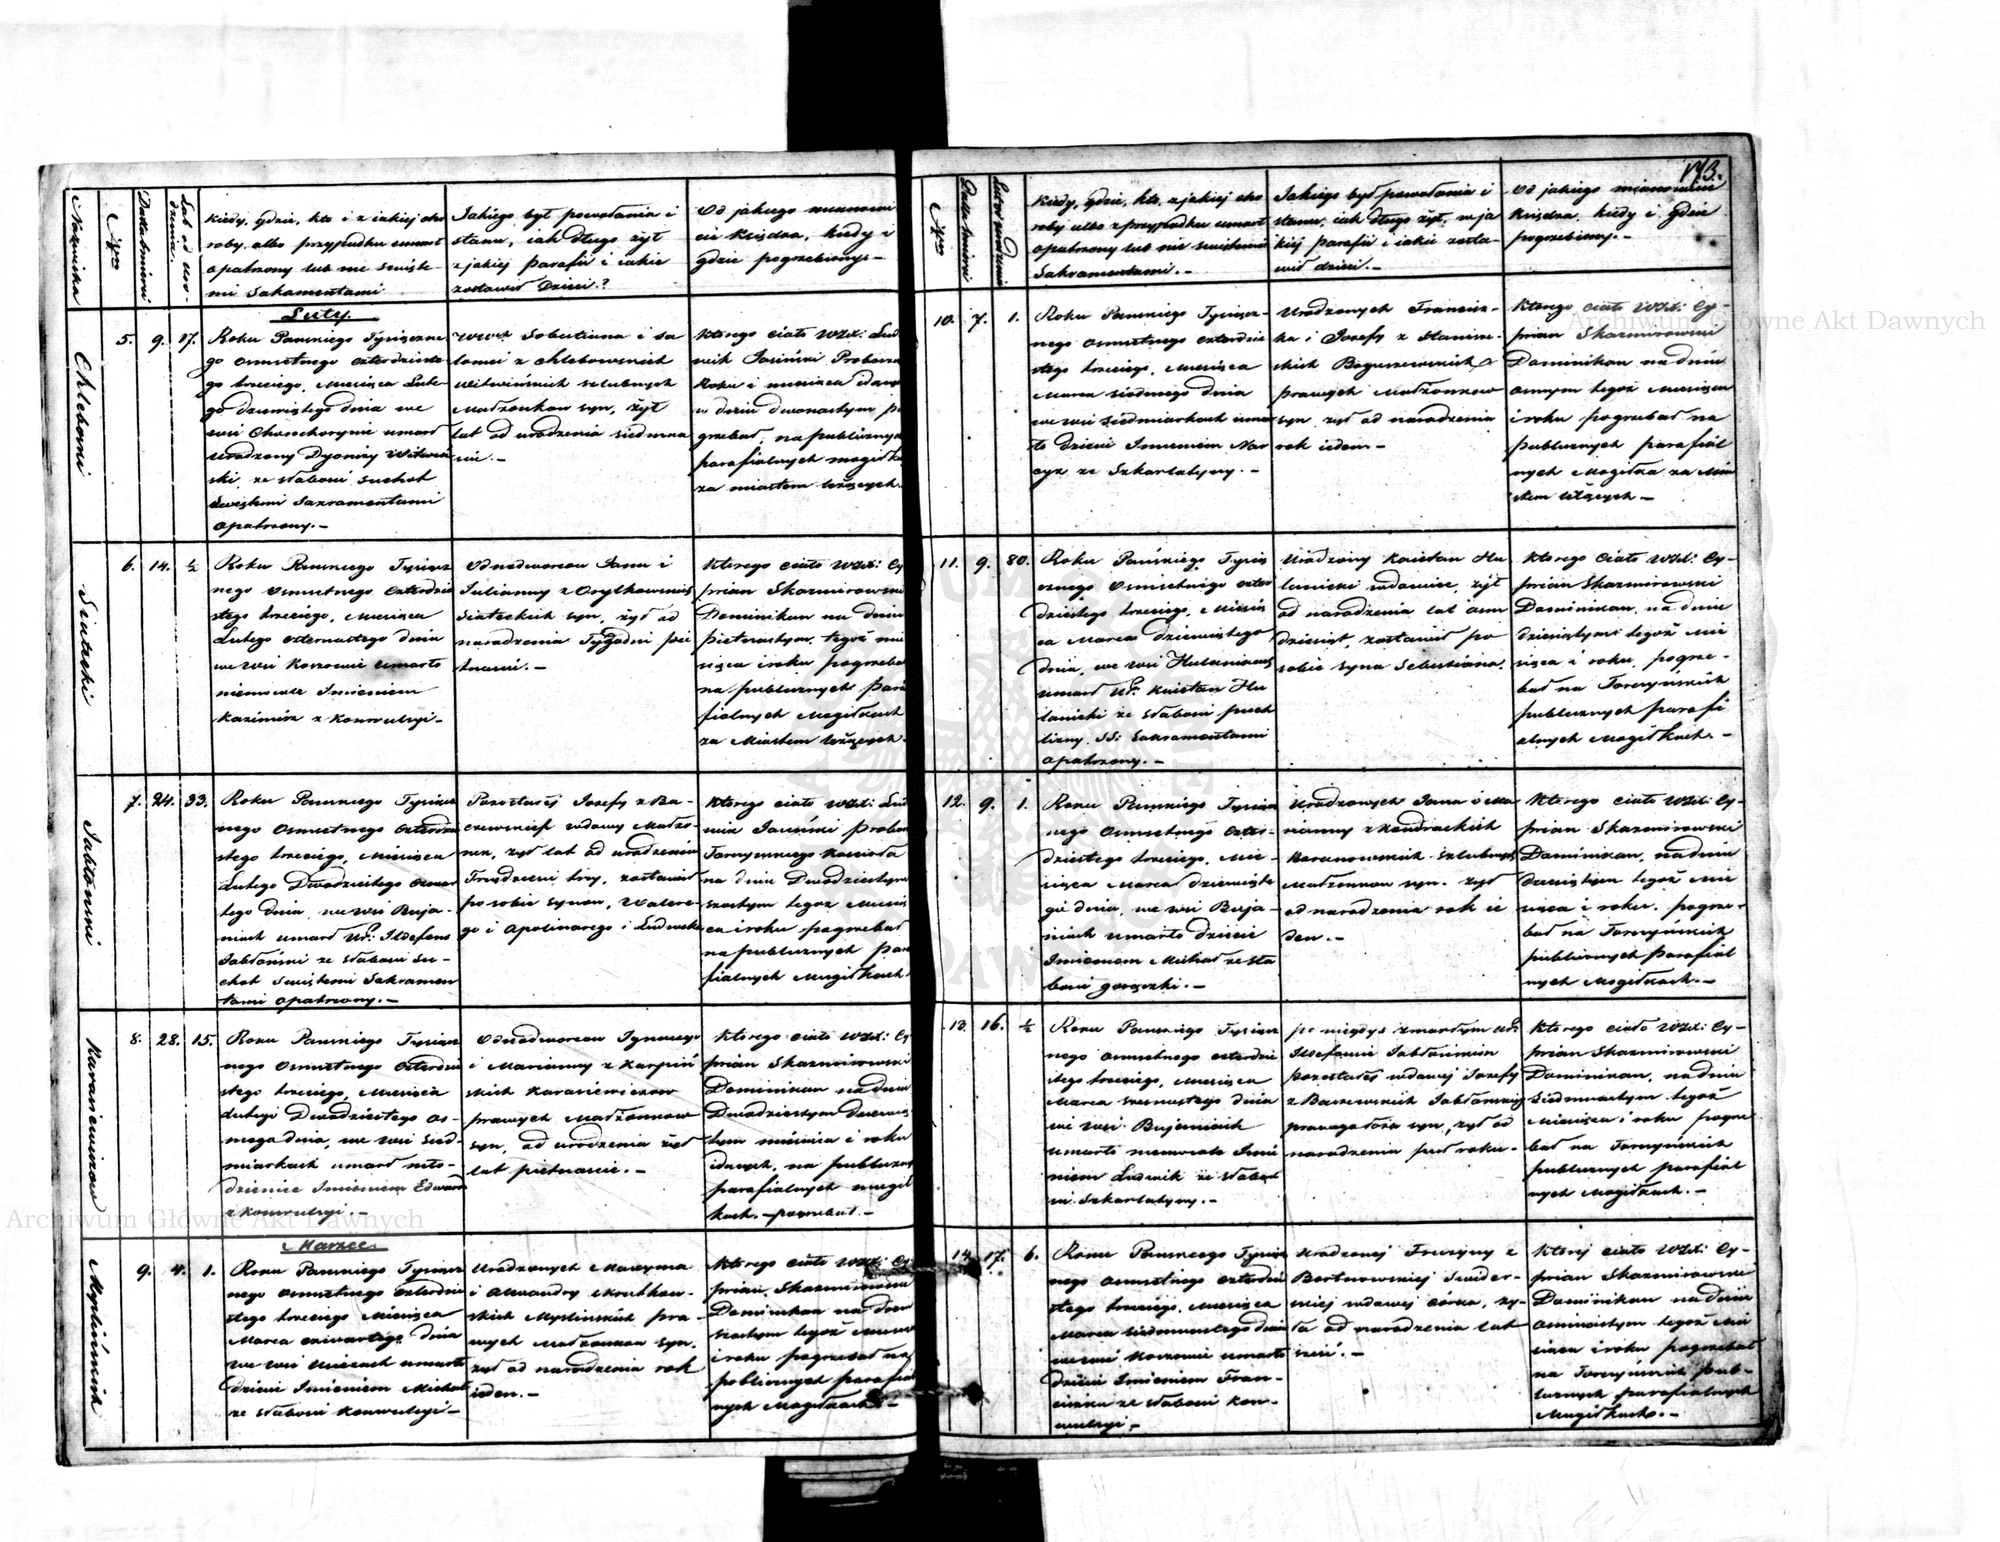 Nazwiska
Nro
Data śmierci
Lat od uro-
dzenia
Kiedy, gdzie, kto i z iakiej cho
roby, albo przypadku umarł
opatrzony lub nie święte-
mi Sakramentami
Jakiego był powołania i
stanu, iak długo żył
z jakiej Parafii i iakie
zostawił Dzieci?
Od jakiego mianowi
cie Księdza, kiedy i
gdzie pogrzebiony.-
Luty.
Chlebowni
5. 9. 17.
Roku Panskiego Tysiączne
go osmsetnego czterdzieste
go trzeciego, Miesiąca Lute-
go dziewiątego dnia we
wsi Chorochorynie umarł
Urodzony Dyonizy Witwiń
ski, ze słabości suchot
Swiętemi Sakramentami
opatrzony.-
Sebestiana i Sa
lomei z Chlebowskich
Witwińskich szlubnych
Małżonkow syn, żył
lat od urodzenia siedmna
scie.-
Ktorego ciało WJX: Lud
wik Jasiński Proboszcz
Roku i miesiąca idącego
w dniu dwonastym po
grzebał, na publicznych
parafialnych mogiłkach
za miastem leżących.-
6. 14. ½
Roku Panskiego Tysiącz
nego osmsetnego czterdzie
stego trzeciego, Miesiąca
Lutego czternastego dnia
we wsi Korzowie umarło
niemowle Imieniem
Kazimierz z Konwulsyi-
Odnodworcow Jana i
Julianny z
syn, żył od
narodzenia Tygodni pię
tnascie.-
Ktorego ciało WJX: Cy
prian Skazmirowski
Dominikan na dniu
pietnastym, tegoż mie
siąca i roku pogrzebał
na publicznych Para
fialnych Mogiłkach
za Miastem leżących.
Jabłoński
7. 24. 33.
Roku Panskiego Tysiącz
nego Osmsetnego Czterdzie
stego trzeciego, Miesiąca
Lutego Dwadziestego czwar
tego dnia, we wsi Buja-
niach umarł Ur: Ildefons
Jabłoński ze słabości su-
chot Swiętemi Sakramen
tami opatrzony.-
Pozostałej Jozefy z Ba-
czewskich wdowy Małżo-
nek, żył lat od urodzenia
Trzydzieści trzy, zostawił
po sobie synow, Walere-
go i Apolinarego i Ludwika
Ktorego ciało WJX: Lud
wik Jasiński Probosz
Torczynskiego Kościoła
na dniu Dwudziestym
szostym tegoż Miesią
ca i roku pogrzebał
na publicznych Para
fialnych Mogiłkach
Karasiewiczow
8. 28. 15.
Roku Panskiego Tysiącz
nego Osmsetnego Czterdzie
stego trzeciego, Miesiąca
Lutego Dwadziestego os-
mego dnia, we wsi Sied-
miarkach umarł mło-
dzieniec Imieniem Edward
z konwulsyi.-
Odnodworcow Ignacego
i Marianny z Karpiń
skich Karasiewiczow
prawych Małżonkow
syn, od urodzenia żył
lat pietnascie.-
Ktorego ciało WJX: Cy
prian Skazmirowski
Dominikan na dniu
Dwudziestym dziewią
tym miesiąca i roku
idących, na publiczn
parafialnych mogił
kach.- pogrzebał.-
Marzec.
Myslińskich
9. 4. 1.
Roku Panskiego Tysiącz
nego osmsetnego czterdzie
stego trzeciego Miesiąca
Marca czwartego dnia
we wsi umarło
dziecie Imieniem Michał
ze słabości konwulsyi-
Urodzonych Maxyma
i Alexandry z
skich Myslinskich pra-
wych Małżonkow syn,
żył od narodzenia rok
ieden.-
Ktorego ciało WJX: Cy
prian Skazmirowski
Dominikan na dniu
szostym tegoż Miesi
i roku pogrzebał na
publicznych parafial
nych Mogiłkach-
173.
Nro
Data śmierci
Lat od urodzenia
Kiedy, gdzie, kto, z jakiej cho
roby albo z przypadku umarł
opatrzony lub nie swiętemi
Sakramentami.-
Jakiego był powołania i
stanu, iak długo żył, w ja
kiej parafii i iakie zosta-
wił dzieci.-
Od jakiego mianowicie
Księdza, kiedy i gdzie
pogrzebiony.-
10. 7. 1.
Roku Panskiego Tysiącz-
nego osmsetnego czterdzie
stego trzeciego, Miesiąca
Marca siodmego dnia
we wsi Siedmiarkach umar
ło dziecie Imieniem Nar
cyz ze Szkarlatyny.-
Urodzonych Francisz-
ka i Jozefy z Stanisze-
skich Boguszewskich
prawych Małżonkow
syn żył od narodzenia
rok ieden-
Ktorego ciało WJX: Cy-
prian Skazmirowski
Dominikan na dniu
osmym tegoż Miesiąca
i roku pogrzebał na
publicznych parafial
nych Mogiłka za Mia
stem leżących-
11. 9. 80.
Roku Pańskiego Tysią
cznego Osmsetnego czter
dziestego trzeciego, Miesią
ca Marca dziewiątego
dnia, we wsi
umarł Ur: Kaietan Hu
lanicki ze słabości puch
liny SS: Sakramentami
opatrzony.-
Urodzony Kaietan Hu
lanicki wdowiec, żył
od narodzenia lat osm
dziesiąt, zostawił po
sobie syna Sebestiana.
Ktorego ciało WJX: Cy-
prian Skazmirowski
Dominikan, na dniu
dziesiątym tegoż Mie
siąca i roku, pogrze-
bał na Torczyńskich
publicznych parafi
alnych Mogiłkach.-
12. 9. 1.
Roku Panskiego Tysiącz
nego osmsetnego czter-
dziestego trzeciego, Mie-
siąca Marca dziewiąte
go dnia, we wsi Buja-
niach umarło dziecie
Imieniem Michał ze sła
bości gorączki.-
Urodzonych Jana i Ma
rianny z Kondrackich
Baranowskich szlubnych
Małżonkow syn. żył
od narodzenia rok ie
den.-
Ktorego ciało WJX: Cy-
prian Skazmirowski
Dominikan, na dniu
dziesiątym tegoż Mie
siąca i roku, pogrze-
bał na Torczyńskich
publicznych Parafial
nych Mogiłkach.-
13. 16. ½
Roku Panskiego Tysiącz
nego osmsetnego czterdzie
stego trzeciego, Miesiąca
Marca szesnastego dnia
we wsi Bujaniach
umarło niemowle Imie
niem Ludwik ze słabo
ści Szkarlatyny.-
po niegdyś zmarłym Ur:
Ildefonsie Jabłońskim
pozostałej wdowej Jozefy
z Baczewskich Jabłonskiej
prawego łoża syn, żył od
narodzenia puł roku.-
Ktorego ciało WJX: Cy-
prian Skazmirowski
Dominikan, na dniu
Siedmnastym tegoż
Miesiąca i roku pogrze
bał na Torczyńskich
publicznych parafial
nych Mogiłkach.-
14. 17. 6.
Roku Panskiego Tysiącz
nego osmsetnego czterdzie
stego trzeciego, Miesiąca
Marca siedmnastego dnia
we wsi Korzowie umarło
dziecie Imieniem Fran-
ciszka ze słabości kon-
wulsyi-
Urodzonej Trezyny z
Bortnowskiej Swider-
skiej wdowej córka, ży-
ła od narodzenia lat
sześć.-
Ktorej ciało WJX: Cy-
prian Skazmirowski
Dominikan na dniu
osmnastym tegoż Mie
siąca i roku pogrzebał
na Torczyńskich pub-
licznych parafialnych
Mogiłkach.-
Archiwum Główne Akt Dawnych
Archiwum Główne Akt Dawnych